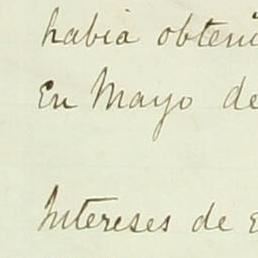 habia obteni
En Mayo de
Intereses de E